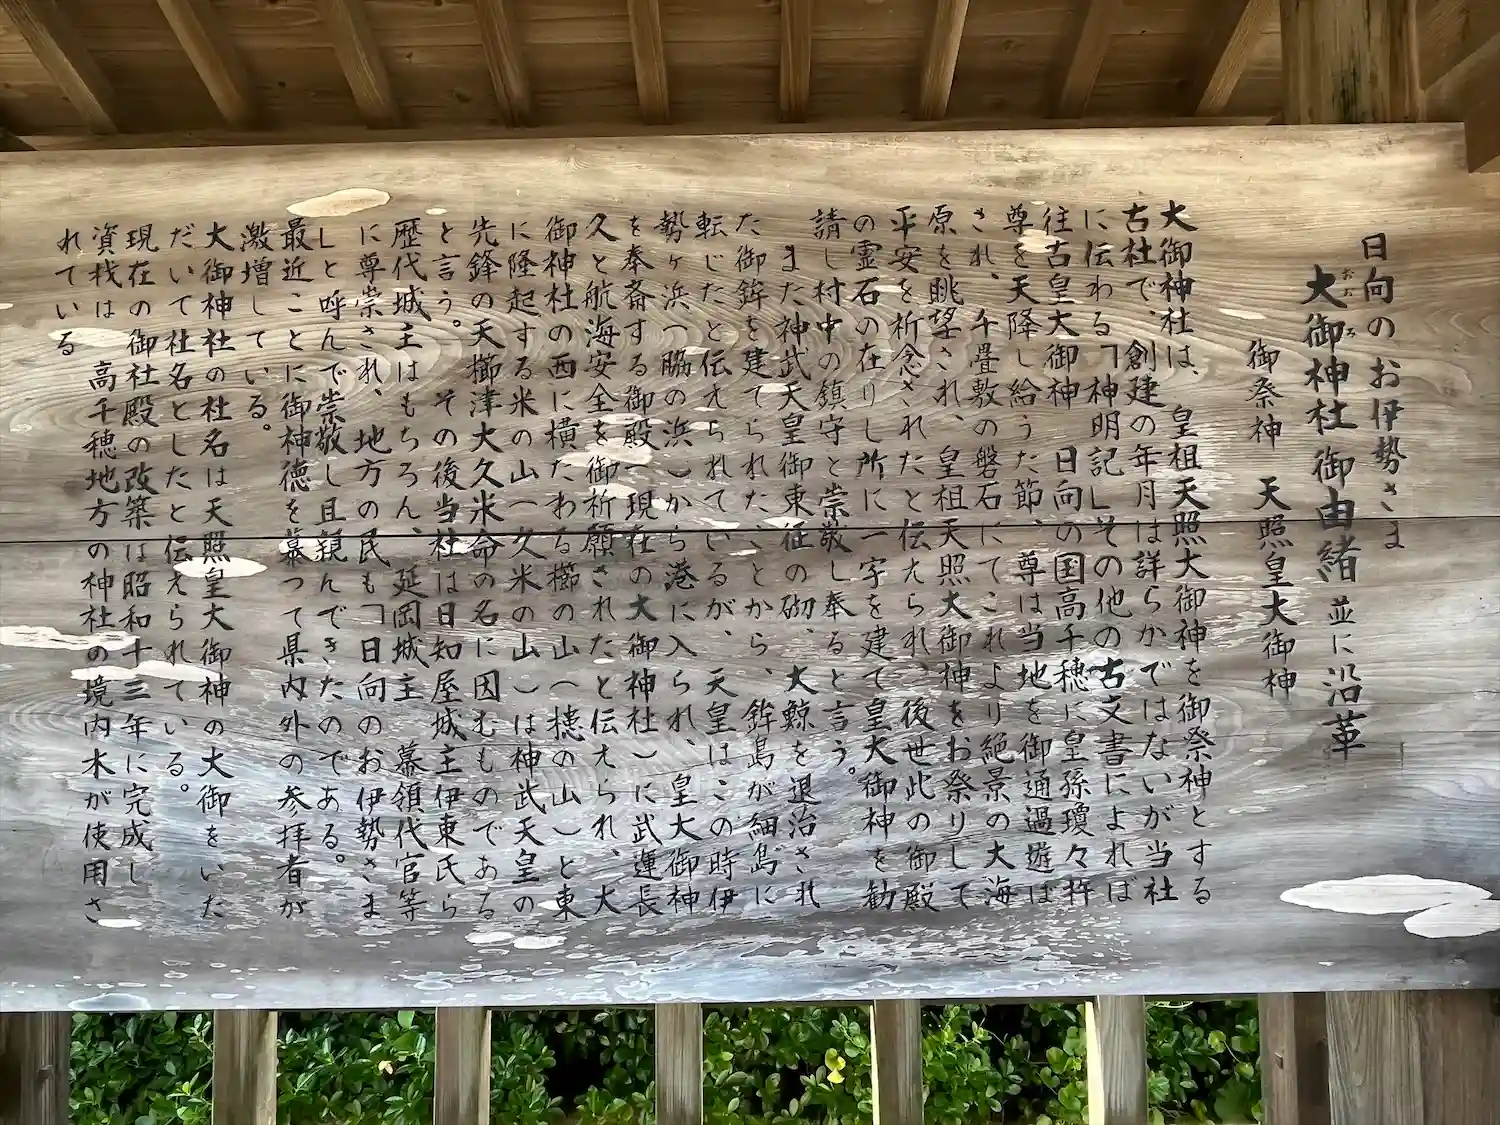 日向のお伊勢さま
大御神社御由緒並に沿革
おお み
御祭神 天照皇大御神
大御神社は、皇祖天照大御神を御祭神とする
古社で、創建の年月は詳らかではないが当社
に伝わる「神明記」その他の古文書によれば
往古皇大御神 日向の国高千穂に皇孫瓊々杵
尊を天降し給うた節、尊は当地を御通過遊ば
され、千畳敷の磐石にてこれより絶景の大海
原を眺望され、皇祖天照大御神をお祭りして
平安を祈念されたと伝えられ、後世此の御殿
の霊石の在りし所に一宇を建て皇大御神を勧
請し村中の鎮守と崇敬し奉ると言う。
また神武天皇御東征の砌、大鯨を退治され
た御鉾を建てられた、ことから、鉾島が細島に
転じたと伝えられているが、天皇はこの時伊
勢ヶ浜(脇の浜)から港に入られ、皇大御神
を奉斎する御殿(現在の大御神社)に武運長
久と航海安全を御祈願されたと伝えられ、大
御神社の西に横たわる櫛の山(櫓の山)と東
に隆起する米の山(久米の山)は神武天皇の
先鋒の天櫛津大久米命の名に因むものである
と言う。その後当社は日知屋城主伊東氏ら
歴代城主はもちろん、延岡城主 幕領代官等
に尊崇され、地方の民も「日向のお伊勢さま
」と呼んで崇敬し且親んできたのである。
最近ことに御神徳を慕って県内外の参拝者が
激増している。
大御神社の社名は天照皇大御神の大御をいた
だいて社名としたと伝えられている。
現在の御社殿の改築は昭和十三年に完成し
資材は 高千穂地方の神社の境内木が使用さ
れている